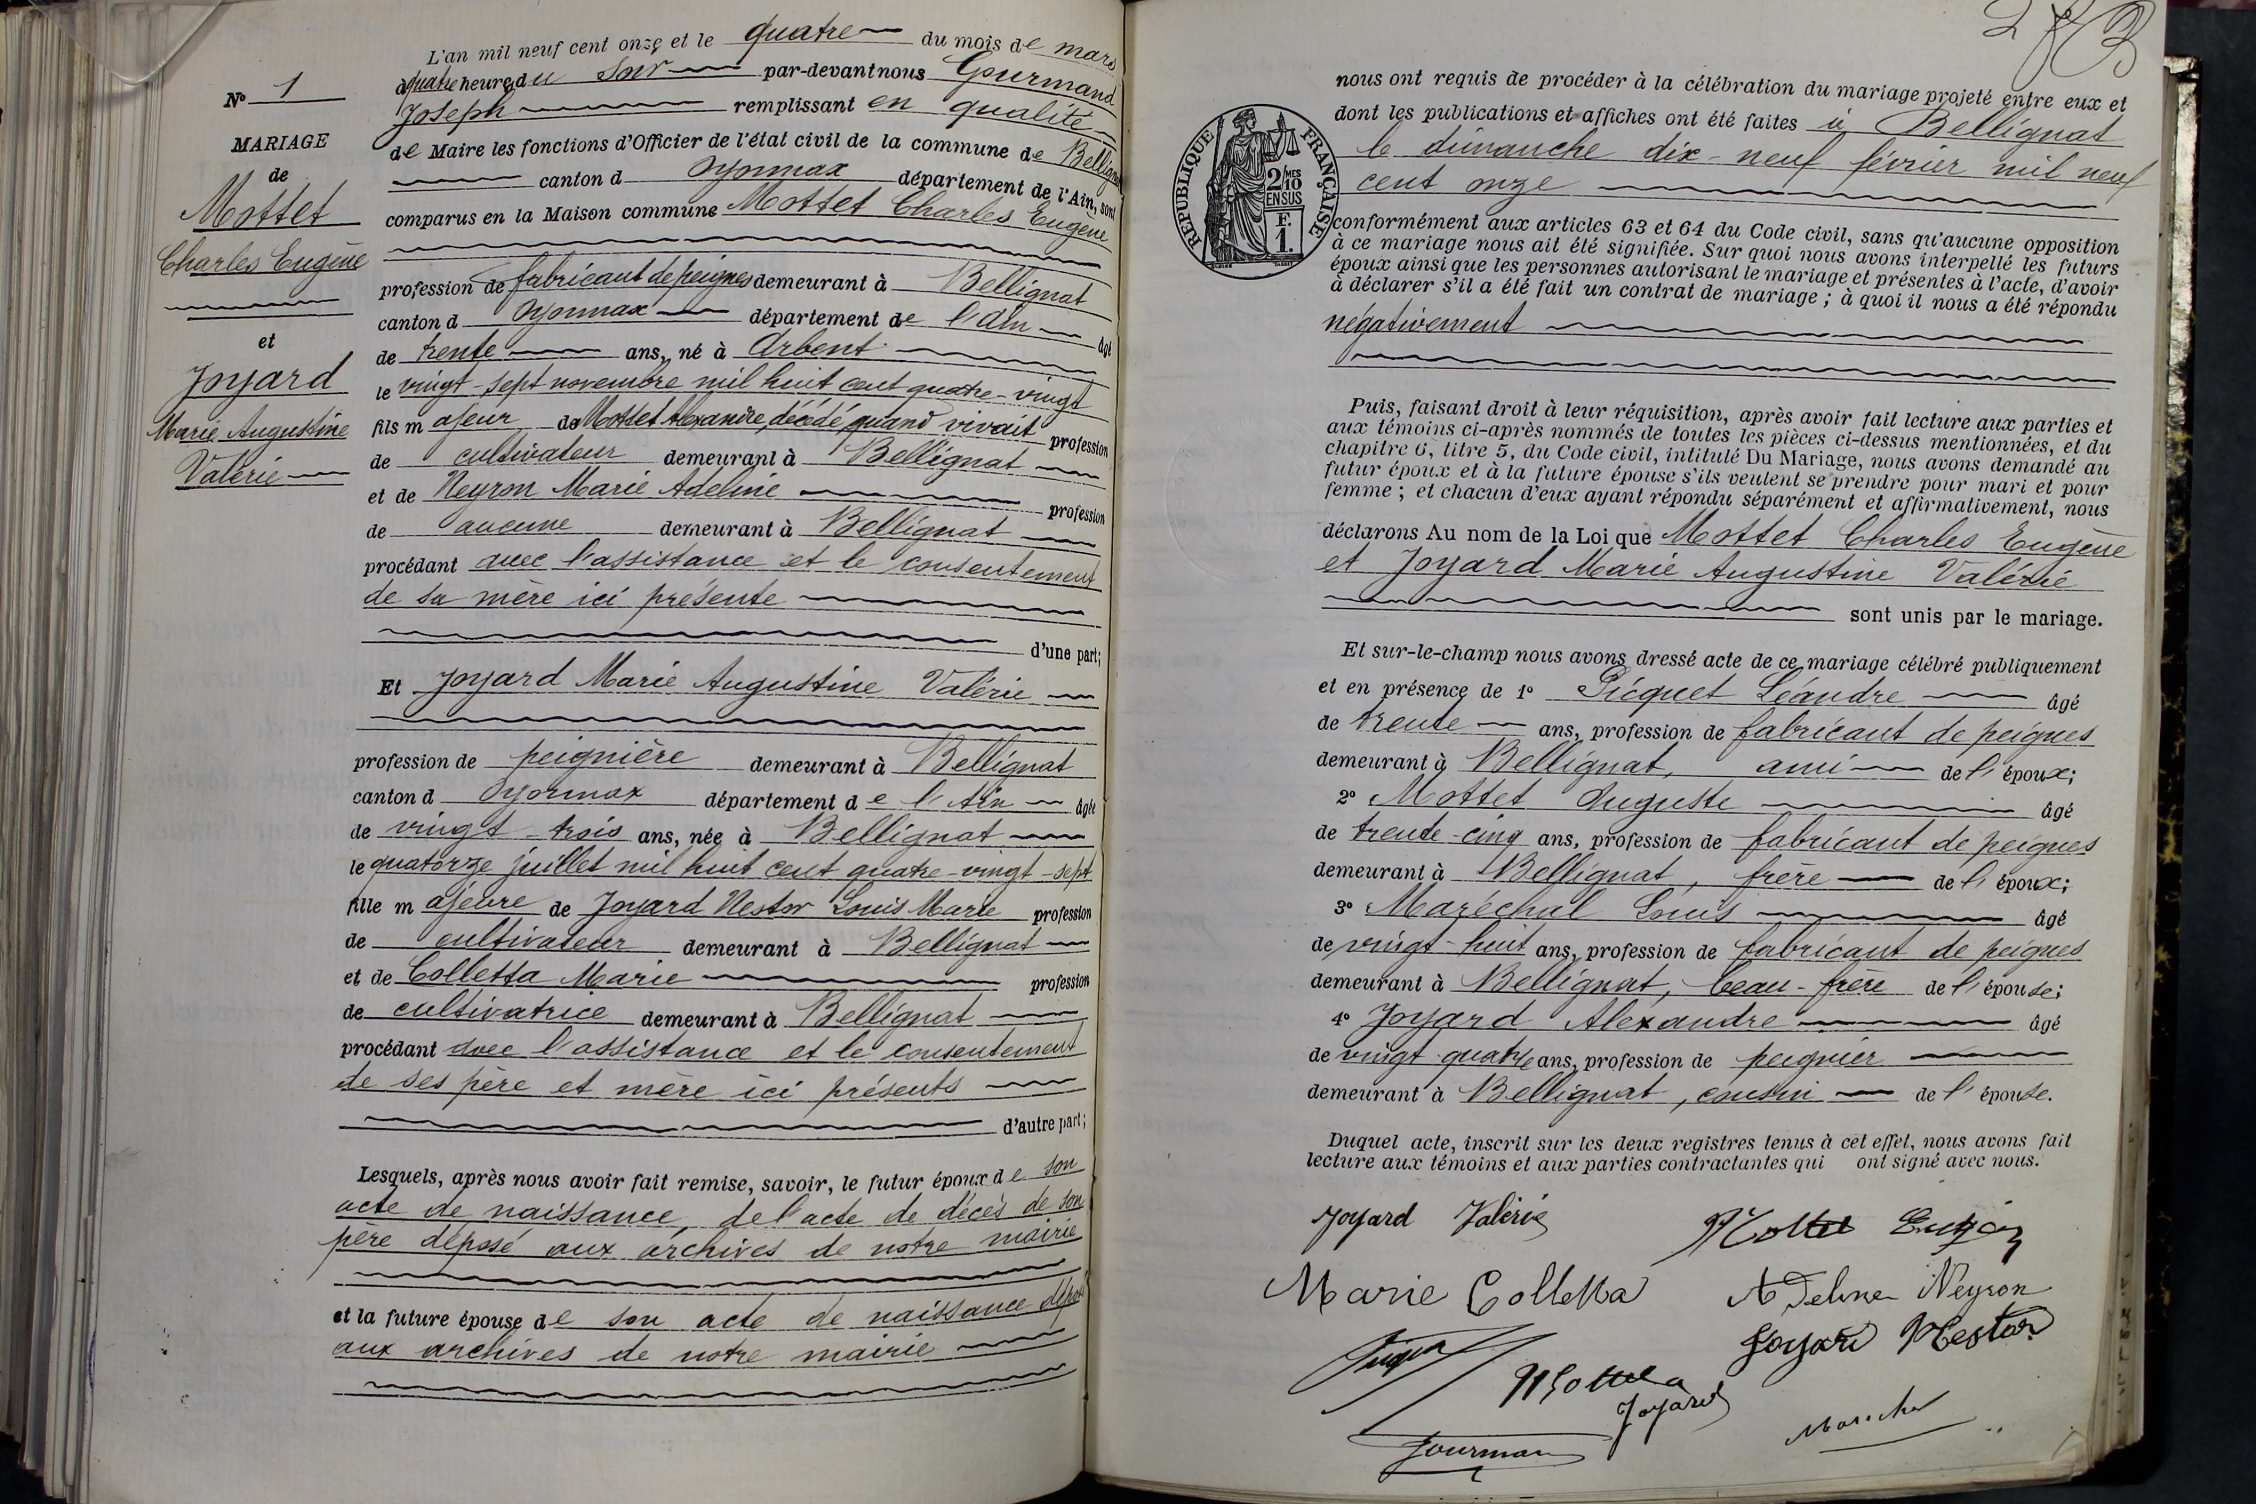 L'an mil neuf cent onze et le quatre du mois de mars
à quatre heures du soir par-devant nous Gourmand
Joseph remplissant en qualité
de Maire les fonctions d'Officier de l'état civil de la commune de Bellignat
canton d Oyonnax département de l'Ain, sont
comparus en la Maison commune Mottet Charles Eugène
profession de fabricant de peignes demeurant à Bellignat
canton d Oyonnax département de l'Ain âgé
de trente ans, né à Arbent
le vingt-sept novembre mil huit cent quatre-vingt
fils majeur de Mottet Alexandre, décédé, quand vivait profession
de cultivateur demeurant à Bellignat
et de Neyron Marie Adeline profession
de aucune demeurant à Bellignat
procédant avec l'assistance et le consentement
de sa mère ici présente
d'une part;
Et Joyard Marie Augustine Valérie
profession de peignière demeurant à Bellignat
canton d Oyonnax département de l'Ain âgée
de vingt-trois ans, née à Bellignat
le quatorze juillet mil huit cent quatre-vingt-sept
fille majeure de Joyard Nestor Louis Marie profession
de cultivateur demeurant à Bellignat
et de Colletta Marie profession
de cultivatrice demeurant à Bellignat
procédant avec l'assistance et le consentement
de ses père et mère ici présents
d'autre part;
Lesquels, après nous avoir fait remise, savoir, le futur époux de son
acte de naissance, de l'acte de décès de son
père déposé aux archives de notre mairie
et la future épouse de son acte de naissance déposé
aux archives de notre mairie
N° 1
MARIAGE
de
Mottet
Charles Eugène
et
Joyard
Marie Augustine
Valérie
nous ont requis de procéder à la célébration du mariage projeté entre eux et
dont les publications et affiches ont été faites à Bellignat
le dimanche dix-neuf février mil neuf
cent onze
RÉPUBLIQUE FRANÇAISE
2/10 MES
EN SUS
F.
1.
conformément aux articles 63 et 64 du Code civil, sans qu'aucune opposition
à ce mariage nous ait été signifiée. Sur quoi nous avons interpellé les futurs
époux ainsi que les personnes autorisant le mariage et présentes à l'acte, d'avoir
à déclarer s'il a été fait un contrat de mariage; à quoi il nous a été répondu
négativement
Puis, faisant droit à leur réquisition, après avoir fait lecture aux parties et
aux témoins ci-après nommés de toutes les pièces ci-dessus mentionnées, et du
chapitre 6, titre 5, du Code civil, intitulé Du Mariage, nous avons demandé au
futur époux et à la future épouse s'ils veulent se prendre pour mari et pour
femme; et chacun d'eux ayant répondu séparément et affirmativement, nous
déclarons Au nom de la Loi que Mottet Charles Eugène
et Joyard Marie Augustine Valérie
sont unis par le mariage.
Et sur-le-champ nous avons dressé acte de ce mariage célébré publiquement
et en présence de 1° Picquet Léandre âgé
de trente ans, profession de fabricant de peignes
demeurant à Bellignat, ami de l'époux;
2° Mottet Auguste âgé
de trente-cinq ans, profession de fabricant de peignes
demeurant à Bellignat, frère de l'époux;
3° Maréchal Louis âgé
de vingt-huit ans, profession de fabricant de peignes
demeurant à Bellignat, beau-frère de l'épouse;
4° Joyard Alexandre âgé
de vingt-quatre ans, profession de peignier
demeurant à Bellignat, cousin de l'épouse.
Duquel acte, inscrit sur les deux registres tenus à cet effet, nous avons fait
lecture aux témoins et aux parties contractantes qui ont signé avec nous.
Joyard Valérie Mottet Eugène
Marie Colletta Adeline Neyron
Joyard Nestor
Mottet A
Joyard
Gourmand